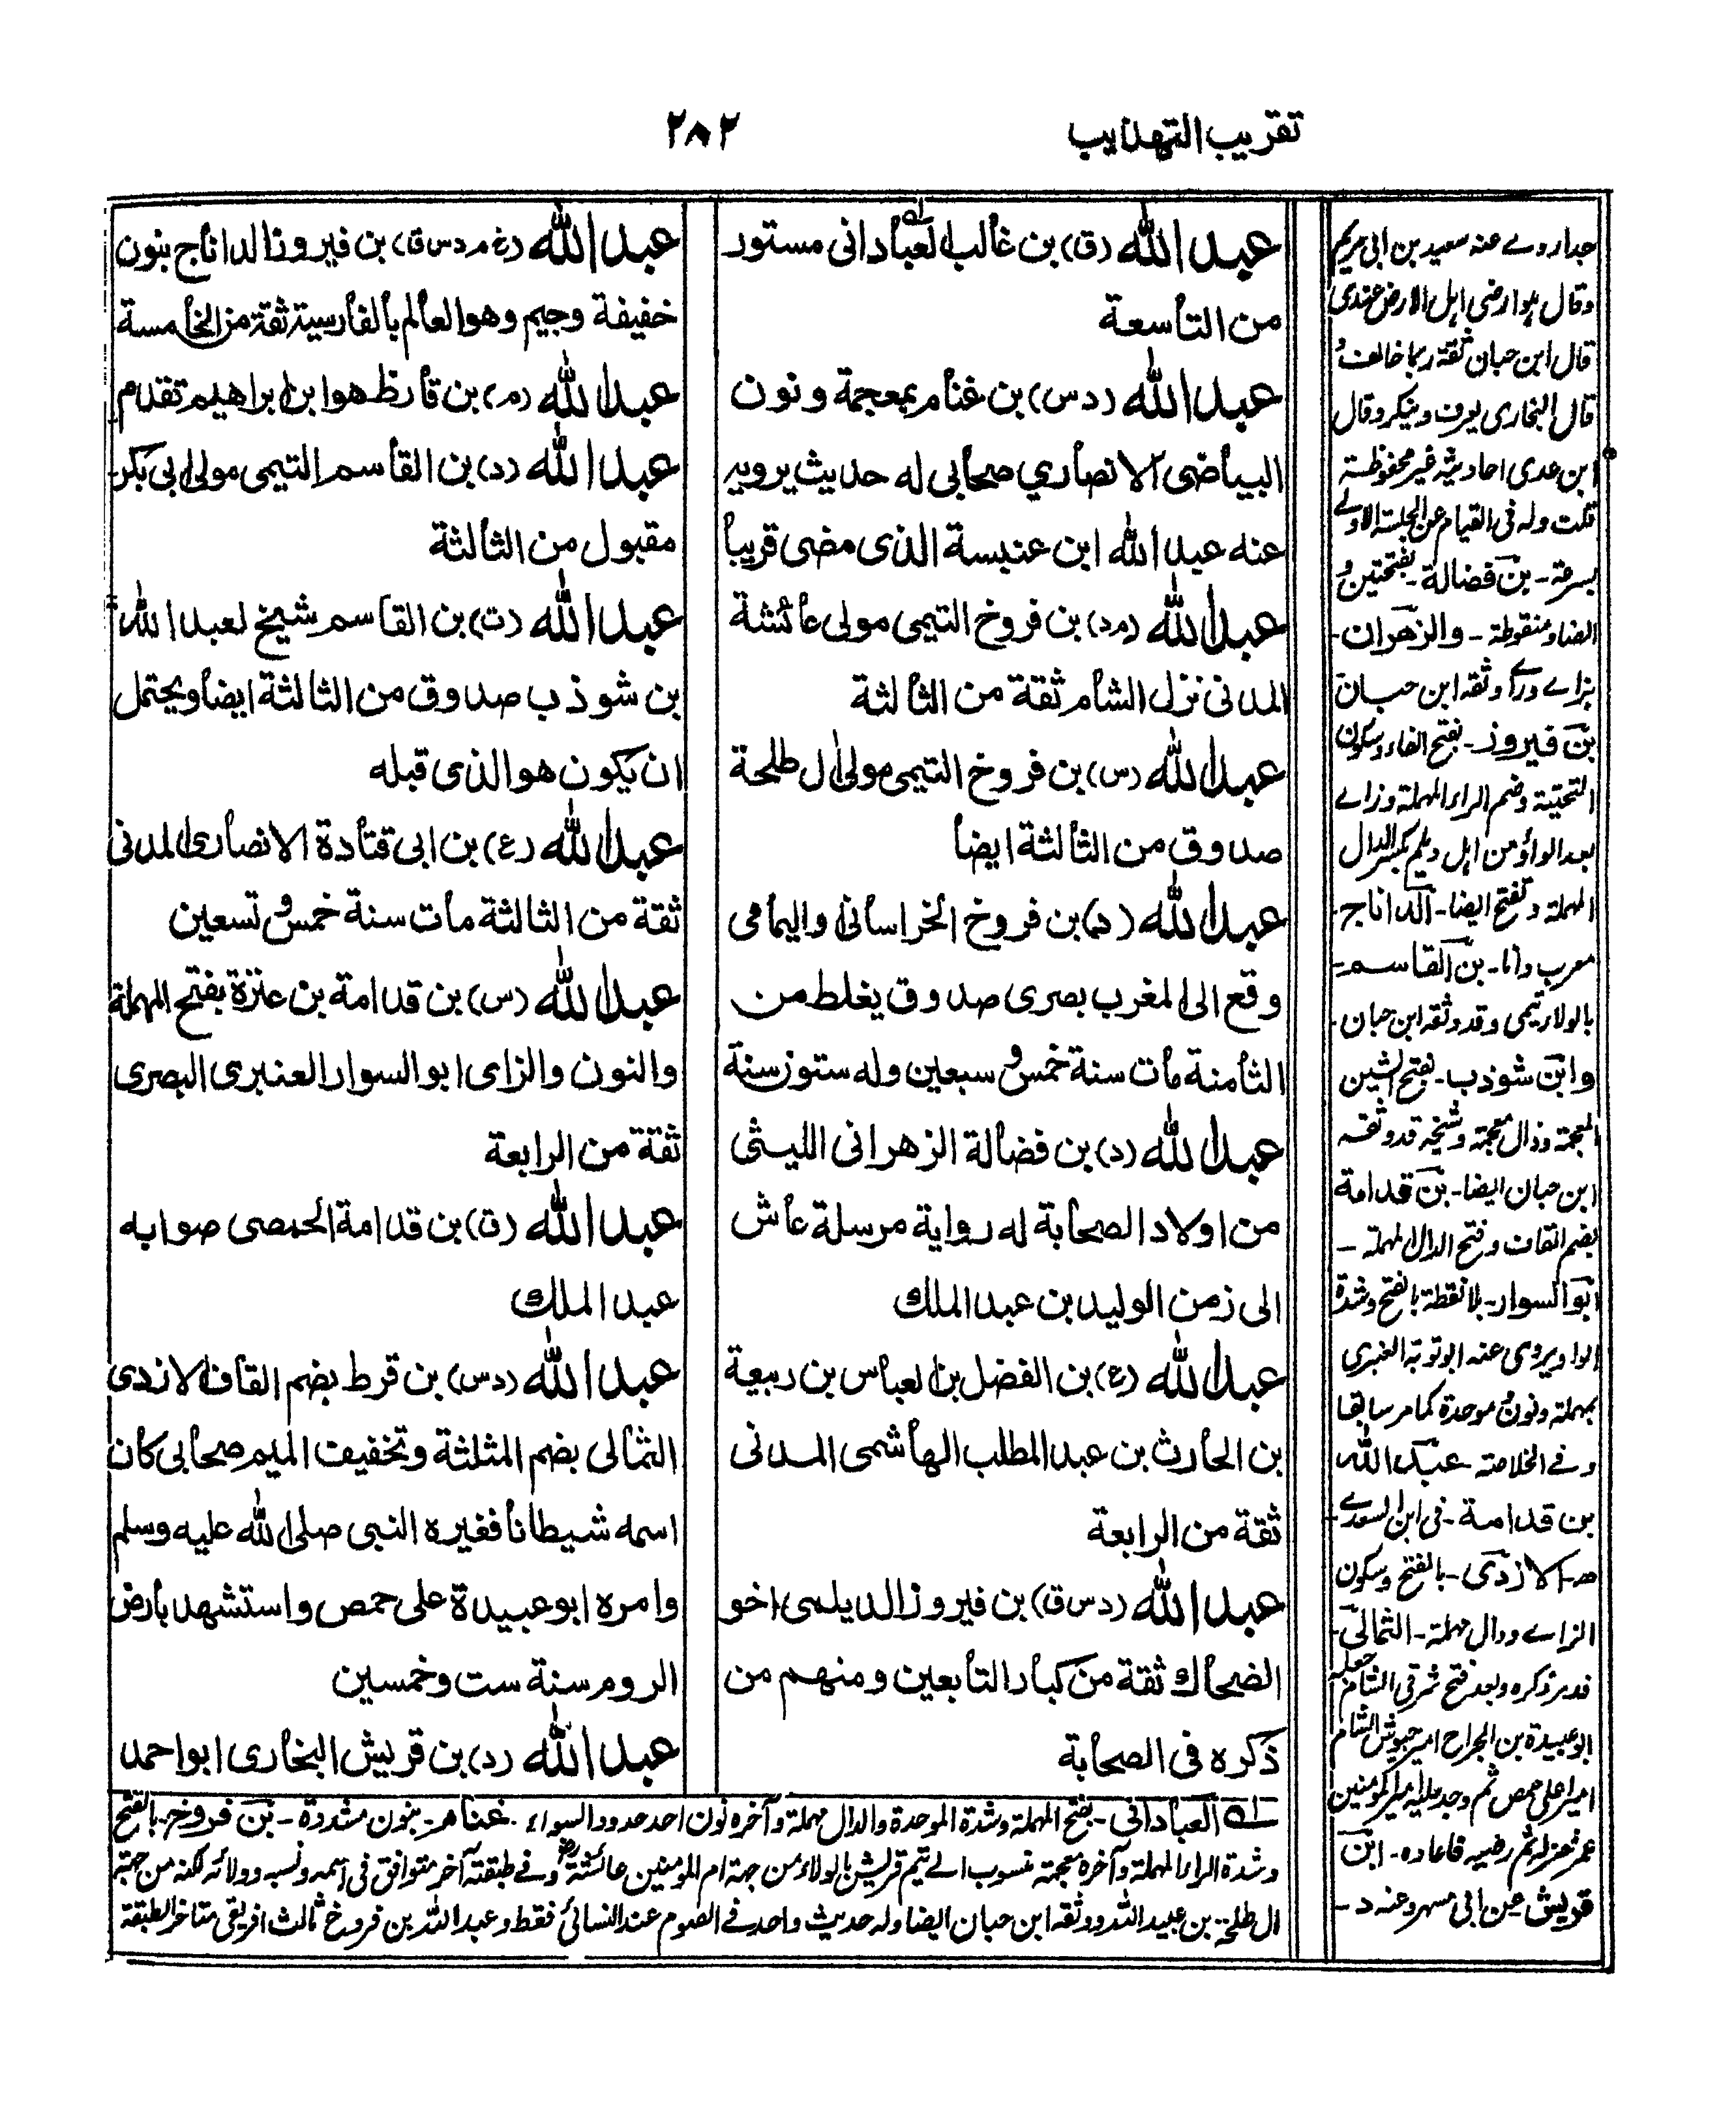 تقريب التهذيب
٢٨٢
عبد الله (ق) بن غالب العباداني مستور
من التاسعة
عبد الله (د س) بن غنام بمعجمة ونون
البياضى الانصاري صحابى له حديث يرويه
عنه عبد الله ابن عنبسة الذى مضى قريبا
عبد الله (م د) بن فروخ التيمى مولى عائشة
المدنى نزل الشام ثقة من الثالثة
عبد الله (س) بن فروخ التيمى مولى ال طلحة
صدوق من الثالثة ايضا
عبد الله (د) بن فروخ الخراسانى واليمامى
وقع الى المغرب بصرى صدوق يغلط من
الثامنة مات سنة خمس و سبعين وله ستون سنة
عبد الله (د) بن فضالة الزهرانى الليثى
من اولاد الصحابة له رواية مرسلة عاش
الى زمن الوليد بن عبد الملك
عبد الله (ع) بن الفضل بن العباس بن ربيعة
بن الحارث بن عبد المطلب الهاشمى المدنى
ثقة من الرابعة
عبد الله (د س ق) بن فيروز الديلمى اخو
الضحاك ثقة من كبار التابعين ومنهم من
ذكره فى الصحابة
عبد الله (خ م د س ق) بن فيروز الداناج بنون
خفيفة وجيم وهو العالم بالفارسية ثقة من الخامسة
عبد الله (م) بن قارظ هو ابن ابراهيم تقدم
عبد الله (د) بن القاسم التيمى مولى ابى بكر
مقبول من الثالثة
عبد الله (ت) بن القاسم شيخ لعبد الله
بن شوذب صدوق من الثالثة ايضا ويحتمل
ان يكون هو الذى قبله
عبد الله (ع) بن ابى قتادة الانصارى المدنى
ثقة من الثالثة مات سنة خمس و تسعين
عبد الله (س) بن قدامة بن عنزة بفتح المهملة
والنون والزاى ابو السوار العنبرى البصرى
ثقة من الرابعة
عبد الله (ق) بن قدامة الجمصى صوابه
عبد الملك
عبد الله (د س) بن قرط بضم القاف الازدى
الثمالى بضم المثلثة وتخفيف الميم صحابى كان
اسمه شيطانا فغيره النبى صلى الله عليه وسلم
وامره ابو عبيدة على حمص واستشهد بارض
الروم سنة ست وخمسين
عبد الله (د) بن قريش البخارى ابو احمد
جدا روے عنه سعيد بن ابى مريم
وقال هو ارضى اهل الارض عندى
قال ابن حبان ثقة ربما خالف و
قال البخارى يعرف وينكر وقال
ابن عدى احاديثه غير محفوظة
قلت وله فى القيام عن الجلسة الاولے
بسرعة - بن فضالة - بفتحتين و
الضاد منقوطة - والزهران -
بزاے وراء وثقه ابن حبان
بن فيروز - بفتح الفاء وسكون
التحتية وضم الراء المهملة وزاے
بعد الواو من اهل ديلم بكسر الدال
المهملة وتفتح ايضا - الداناج -
معرب دانا - بن القاسم -
بالولاء تيمى وقد وثقه ابن حبان -
وابن شوذب - بفتح الشين
المعجمة وذال معجمة وشيخه قد وثقه
ابن حبان ايضا - بن قدامة
بضم القاف وفتح الدال المهملة -
ابو السوار - بلا نقطة بالفتح وشدة
الواو يروى عنه ابو توبة العنبرى
بمهملة ونون موحدة كما مر سابقا
وفے الخلاصة عبد الله
بن قدامة - فى ابن السعدے -
الازدى - بالفتح وسكون
الزاے ودال مهملة - الثمالى -
قد مر ذكره وبعد فتح شرقى الشام جعله
ابو عبيدة بن الجراح امير جيوش الشام
اميرا على حمص ثم وجد عليه امير المومنين
عمر فعزله ثم رضيه فاعاده - ابن
قريش عن ابى مسهر وعنه د -
له العباداني - بفتح المهملة وشدة الموحدة والدال مهملة وآخره نون احد حدود السواد - غنام - بنون مشددة - بن فروخ - بالفتح
وشدة الراء المهملة وآخره معجمة منسوب الے تيم قريش بالولاء من جهة ام المومنين عائشة رض وفے طبقته آخر متوافق فى اسمه ونسبه وولائه لكنه من جهة
ال طلحة بن عبيد الله ووثقه ابن حبان ايضا وله حديث واحد فے الصوم عند النسائى فقط وعبد الله بن فروخ ثالث افريقى متاخر الطبقة